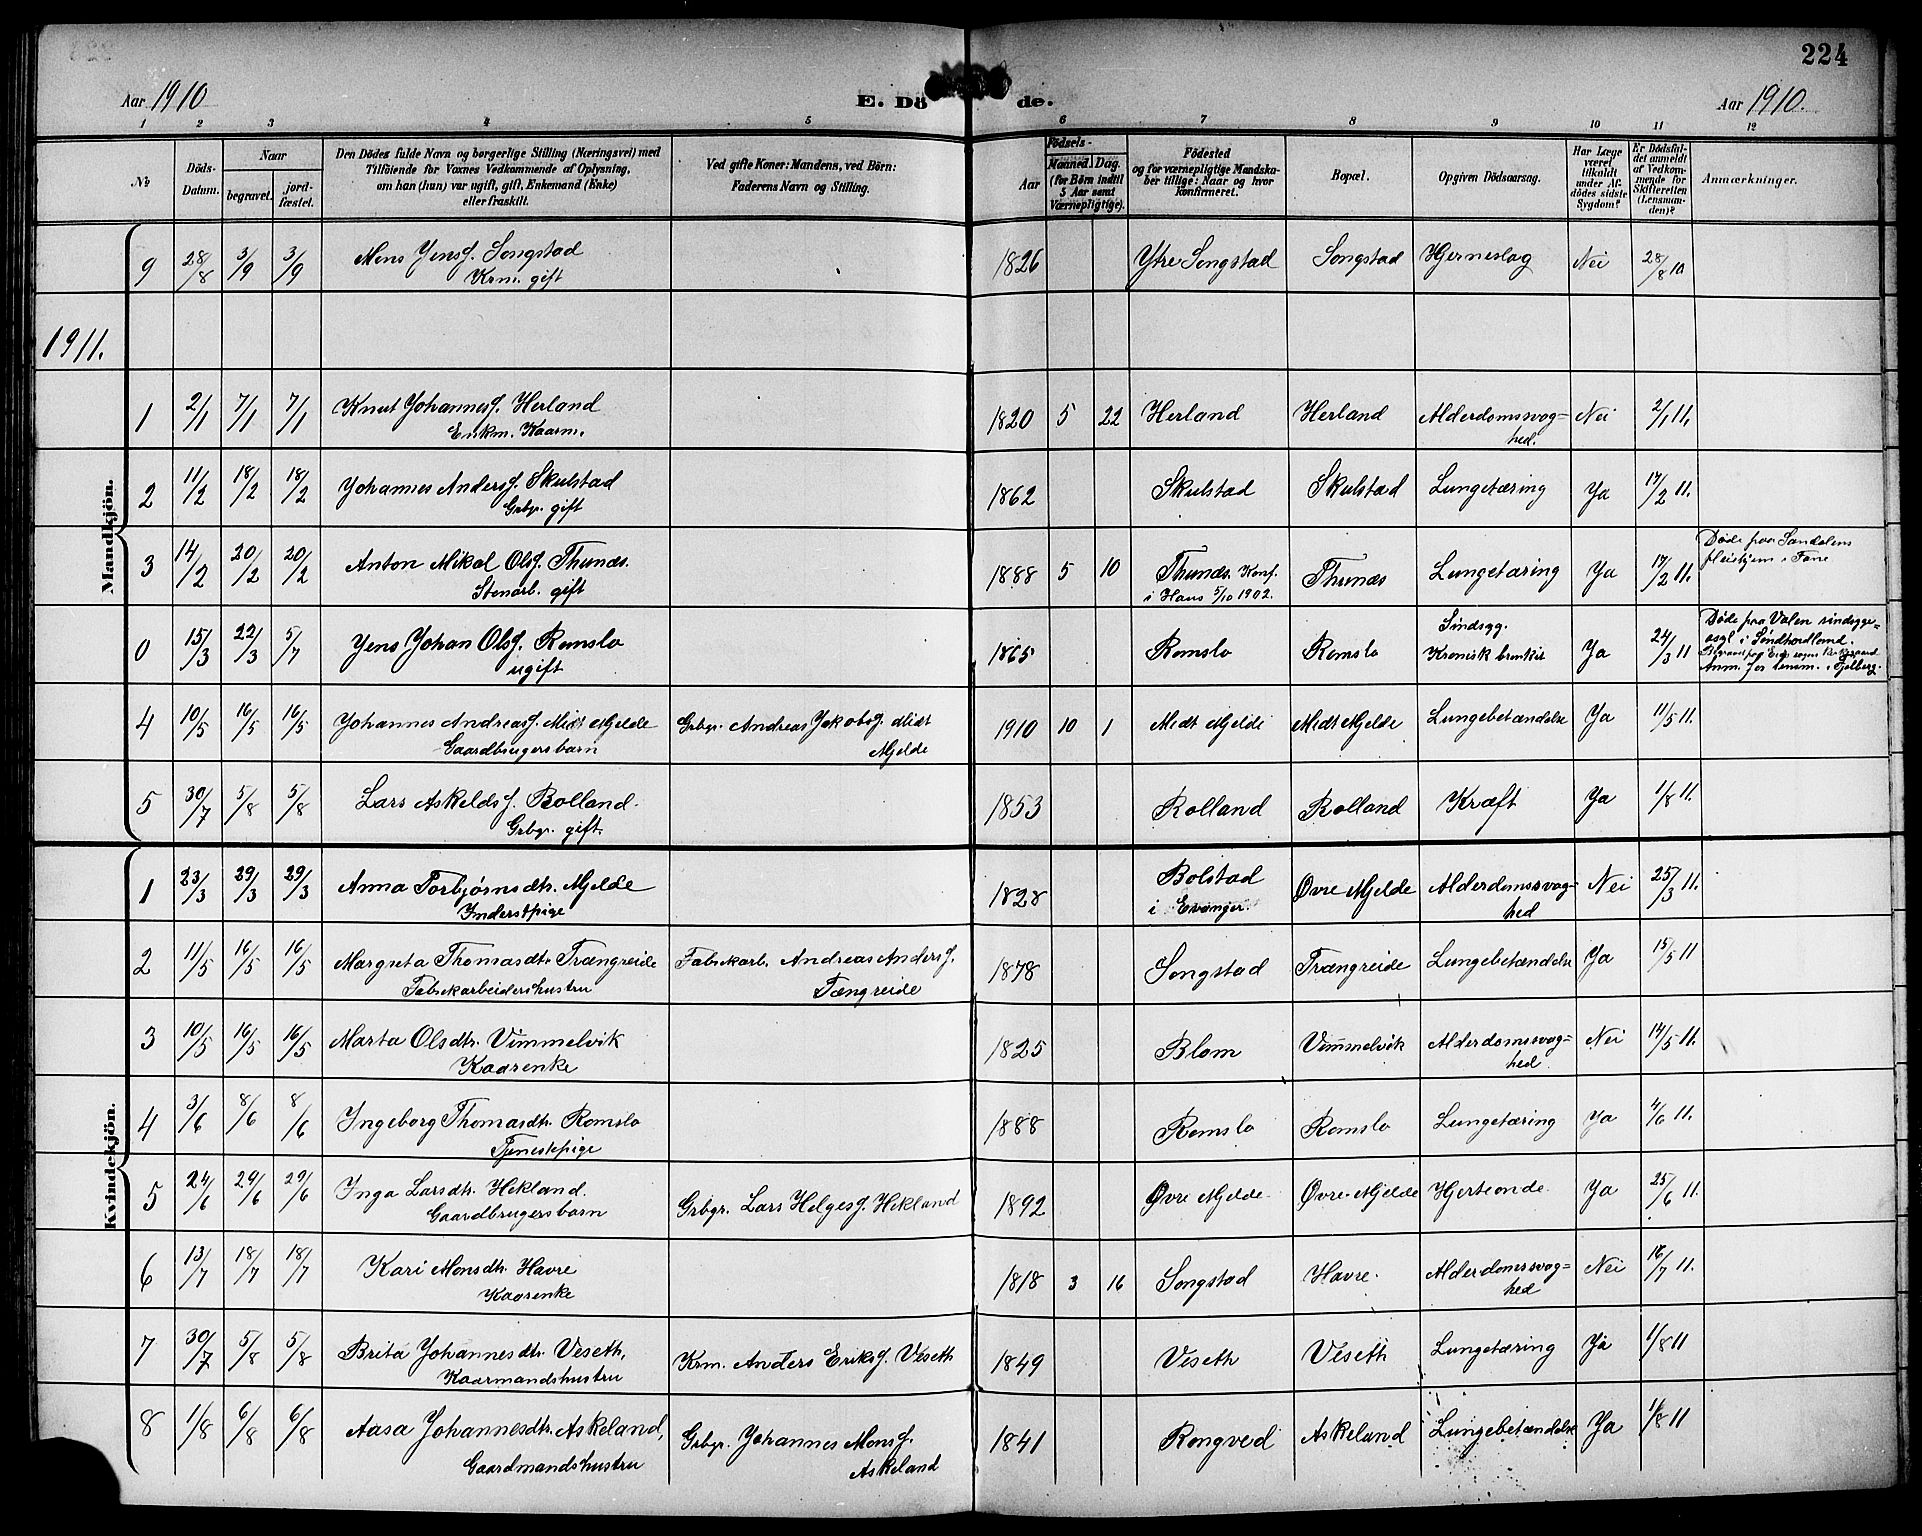 224
Aar 1910
E. Dö de.
Aar 1910.
1 2 3 4 5 6 7 8 9 10 11 12
No
Döds-Datum.
Naar
begravet.
jord-fæstet.
Den Dödes fulde Navn og borgerlige Stilling (Næringsvei) med
Tilföiende for Voxnes Vedkommende af Oplysning,
om han (hun) var ugift, gift, Enkemand (Enke)
eller fraskilt.
Ved gifte Koner: Mandens, ved Börn:
Faderens Navn og Stilling.
Födsels-
Aar
Maaned. Dag.
(for Börn indtil
5 Aar samt
Værnepligtige).
Födested
og for værnepligtige Mandska-
ber tillige: Naar og hvor
konfirmeret.
Bopæl.
Opgiven Dödsaarsag.
Har Læge
været
tilkaldt
under Af-
dödes sidste
Sygdom?
Er Dödsfal-
det anmeldt
af Vedkom-
mende for
Skifteretten
(Lensman-
den)?
Anmærkninger.
9 28/8 3/9 3/9 Mons Jensf. Songstad 1826 Ytre Songstad Songstad Hjerneslag Nei 28/8 10
Krm. gift
1911.
Mandkjön.
1 2/1 7/1 7/1 Knut Johannesf. Herland 1820 5 22 Herland Herland Alderdomssvag= Nei 2/1 11.
Enkm. Kaarm. hed.
2 11/2 18/2 18/2 Johannes Andersf. Skulstad 1862 Skulstad Skulstad Lungetæring Ja 17/2 11.
Grbr. gift
3 14/2 20/2 20/2 Anton Mikal Olsf. Thunæs. 1888 5 10 Thunæs. Konf. Thunæs Lungetæring Ja 17/2 11. Døde paa Sandalens
Stenarb. gift i Haus 5/10 1902. pleiehjem i Fane
0 15/3 22/3 5/7 Jens Johan Olsf. Romslo 1865 Romslo Romslo Sindsyg. Ja 24/3 11 Døde paa Valen sindsyge=
ugift Kronisk bronkit asyl i Søndhordland.
4 10/5 16/5 16/5 Johannes Andreasf. Midt Mjelde Grbgr. Andreas Jakobsf. Midt 1910 10 1 Midt Mjelde Midt Mjelde Lungebetændelse Ja 11/5 11.
Gaardbrugersbarn Mjelde
5 30/7 5/8 5/8 Lars Askeldsf. Rolland. 1853 Rolland Rolland Kræft Ja 1/8 11.
Grbgr. gift.
Kvindekjön.
1 23/3 29/3 29/3 Anna Torbjørnsdtr. Mjelde 1828 Bolstad Øvre Mjelde Alderdomssvag- Nei 25/3 11.
Inderstpige i Evanger. hed
2 11/5 16/5 16/5 Margreta Thomasdtr. Trængreide Fabrikarb. Andreas Andersf. 1878 Songstad Trængreide Lungebetændelse Ja 15/5 11
Fabrikarbeidershustru Tængreide
3 10/5 16/5 16/5 Marta Olsdtr. Vimmelvik 1825 Blom Vimmelvik Alderdomssvag= Nei 14/5 11.
Kaarenke hed.
4 3/6 8/6 8/6 Ingeborg Thomasdtr. Romslo 1888 Romslo Romslo Lungetæring Ja 4/6 11.
Tjenestepige
5 24/6 29/6 29/6 Inga Larsdtr. Hekland. Grbgr. Lars Helgesf. Hekland 1892 Øvre Mjelde Øvre Mjelde Hjerteonde. Ja 25/6 11.
Gaardbrugersbarn
6 13/7 18/7 18/7 Kari Monsdtr. Havre 1818 3 16 Songstad Havre. Alderdomssvag= Nei 16/7 11.
Kaarenke hed
7 30/7 5/8 5/8 Brita Johannesdtr. Veseth, Krm. Anders Eriksf. Veseth 1849 Veseth Veseth Lungetæring Ja 1/8 11
Kaarmandshustru
8 1/8 6/8 6/8 Aasa Johannesdtr. Askeland, Grbgr. Johannes Monsf. 1841 Rongved Askeland Lungebetændelse Ja 1/8 11
Gaardmandshustru Askeland